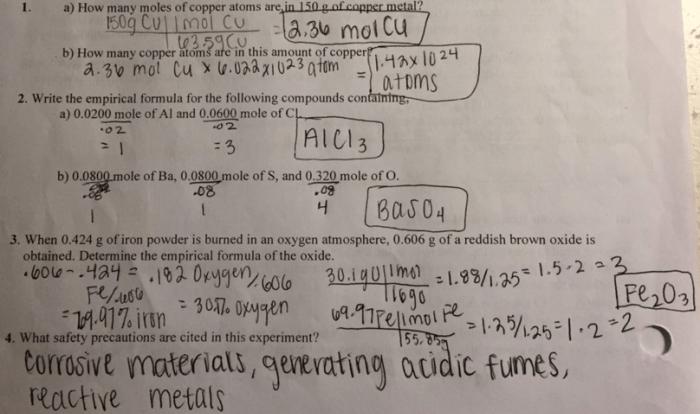 1. a) How many moles of copper atoms are in 150 g of copper metal?
150g Cu | 1 mol Cu = 2.36 mol Cu
63.59 Cu
b) How many copper atoms are in this amount of copper?
2.36 mol Cu x 6.022x1023 atom = 1.42x10 24 atoms
2. Write the empirical formula for the following compounds containing,
a) 0.0200 mole of Al and 0.0600 mole of Cl
.02 .02
= 1 = 3 AlCl3
b) 0.0800 mole of Ba, 0.0800 mole of S, and 0.320 mole of O.
.08 .08 .08
1 1 4 BaSO4
3. When 0.424 g of iron powder is burned in an oxygen atmosphere, 0.606 g of a reddish brown oxide is
obtained. Determine the empirical formula of the oxide.
.606 - .424 = .182 Oxygen/.606 30.1g O | 1mol = 1.88/1.25 = 1.5 · 2 = 3
Fe/.606 = 30.1% oxygen 16g O Fe2O3
= 69.97% iron 69.97 Fe | 1 mol Fe = 1.25/1.25 = 1 · 2 = 2
55.85g
4. What safety precautions are cited in this experiment?
Corrosive materials, generating acidic fumes,
reactive metals